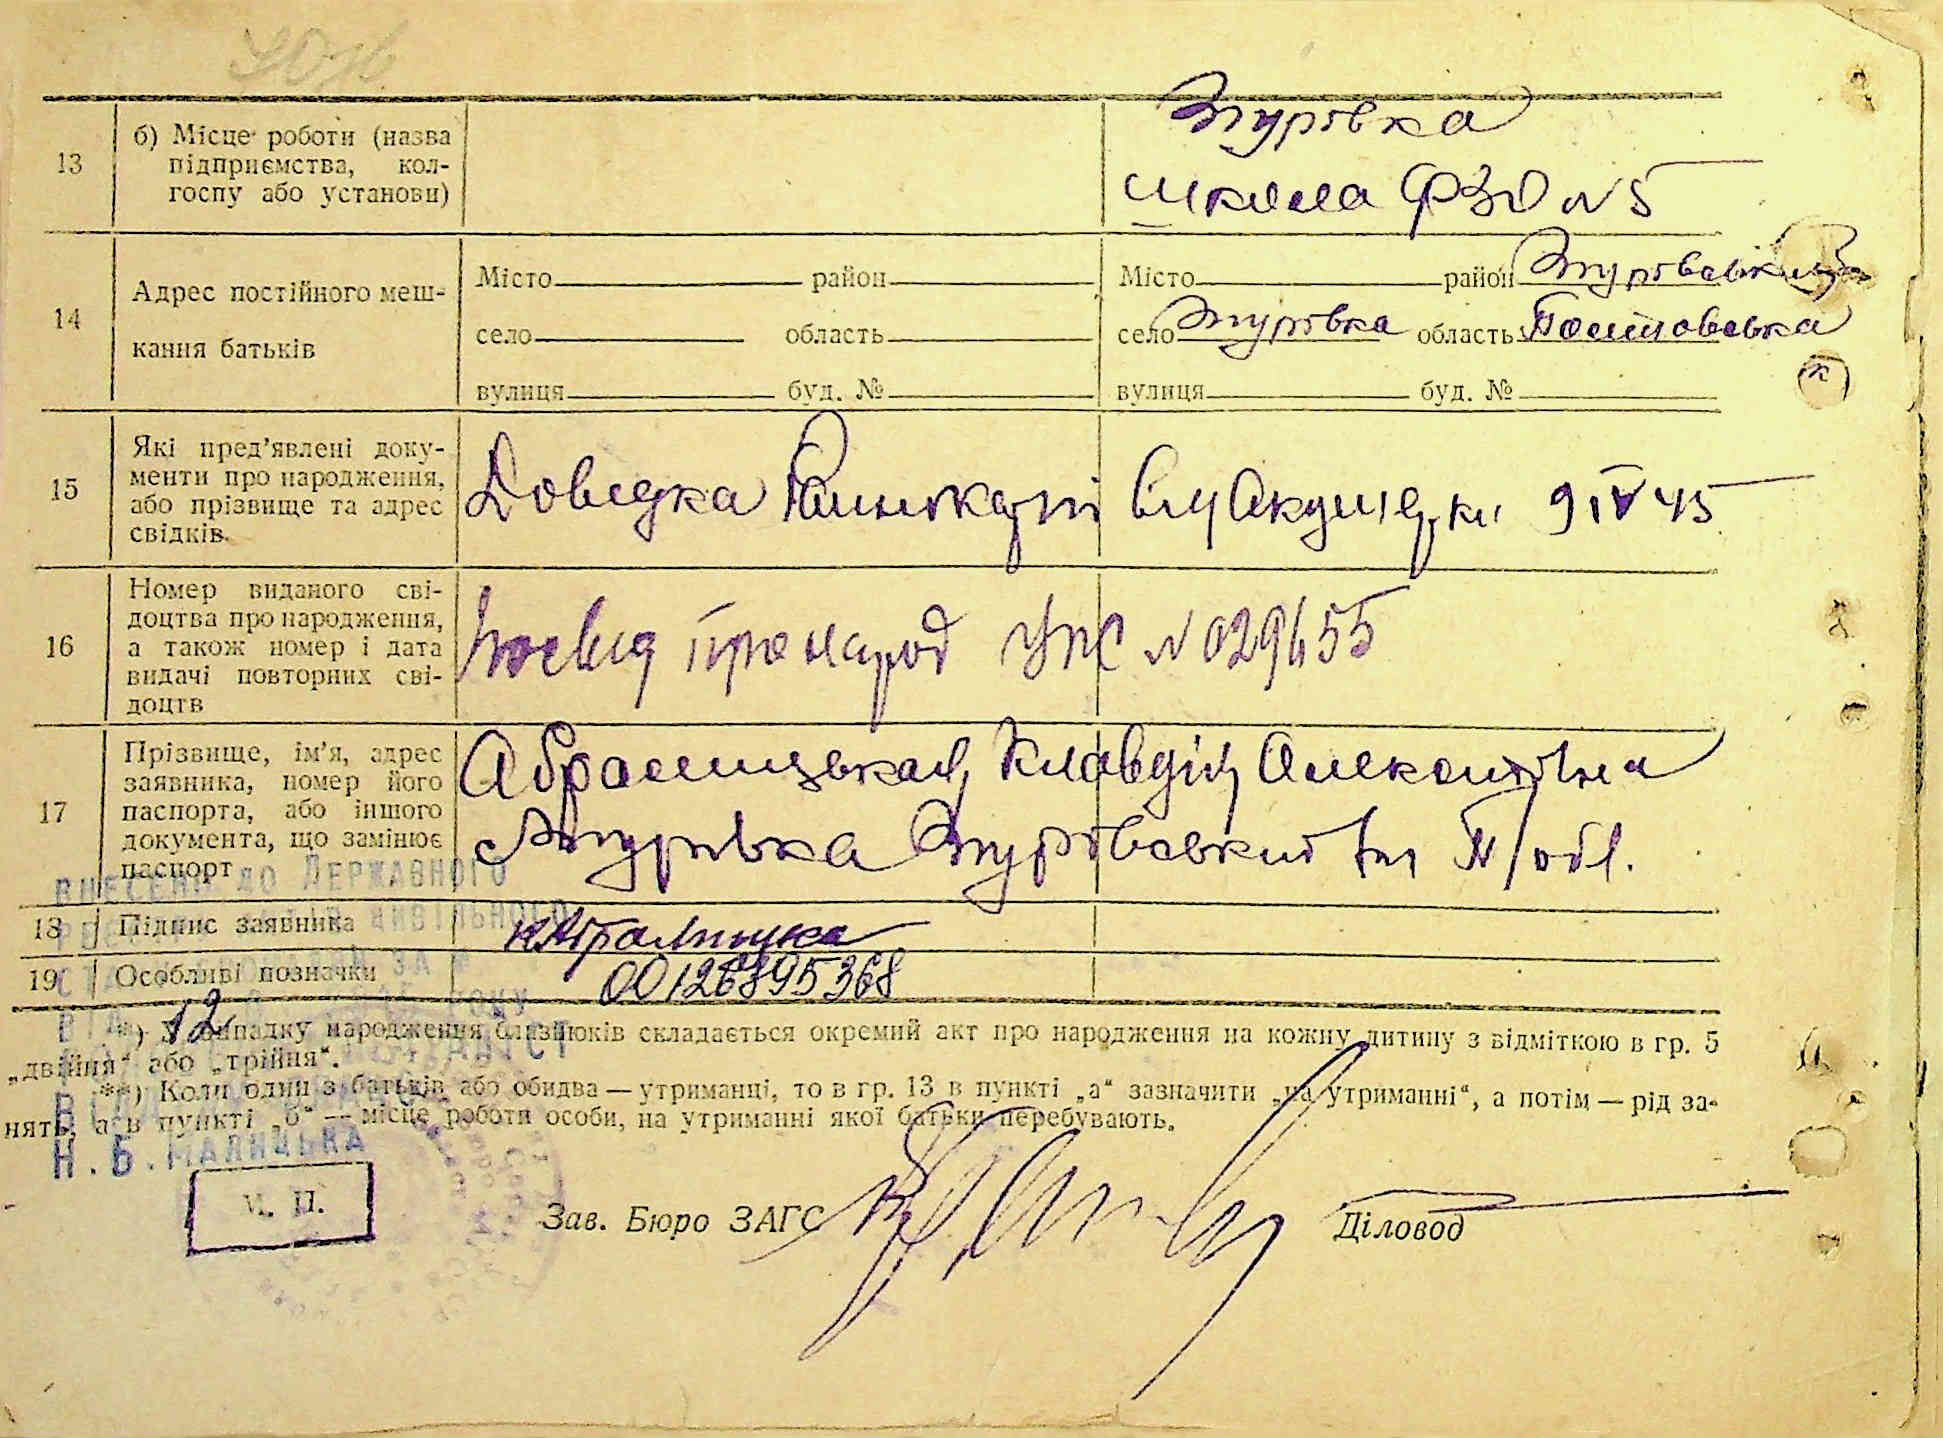 13
б) Місце роботи (назва
підприємства, кол-
госпу або установи)
Згурівка
школа ФЗО №5
14
Адрес постійного меш-
кання батьків
Місто район
село область
вулиця буд. №
Місто район Згурівський
село Згурівка область Полтавська
вулиця буд. №
15
Які пред'явлені доку-
менти про народження,
або прізвище та адрес
свідків.
Довідка від Акушерки 9 IV 45
16
Номер виданого сві-
доцтва про народження,
а також номер і дата
видачі повторних сві-
доцтв
про народ №029655
17
Прізвище, ім'я, адрес
заявника, номер його
паспорта, або іншого
документа, що замінює
паспорт
Клавдія
Згурівка Згурівський П/обл.
18 Підпис заявника
19 Особливі позначки 00126895368
ВНЕСЕНО ДО ДЕРЖАВНОГО
12
*) У випадку народження близнюків складається окремий акт про народження на кожну дитину з відміткою в гр. 5
„двійня“ або „трійня“.
**) Коли один з батьків або обидва — утриманці, то в гр. 13 в пункті „а“ зазначити „на утриманні“, а потім — рід за-
нять, а в пункті „б“ — місце роботи особи, на утриманні якої батьки перебувають.
Н.Б.МАЛИЦЬКА
М. П.
Зав. Бюро ЗАГС Діловод